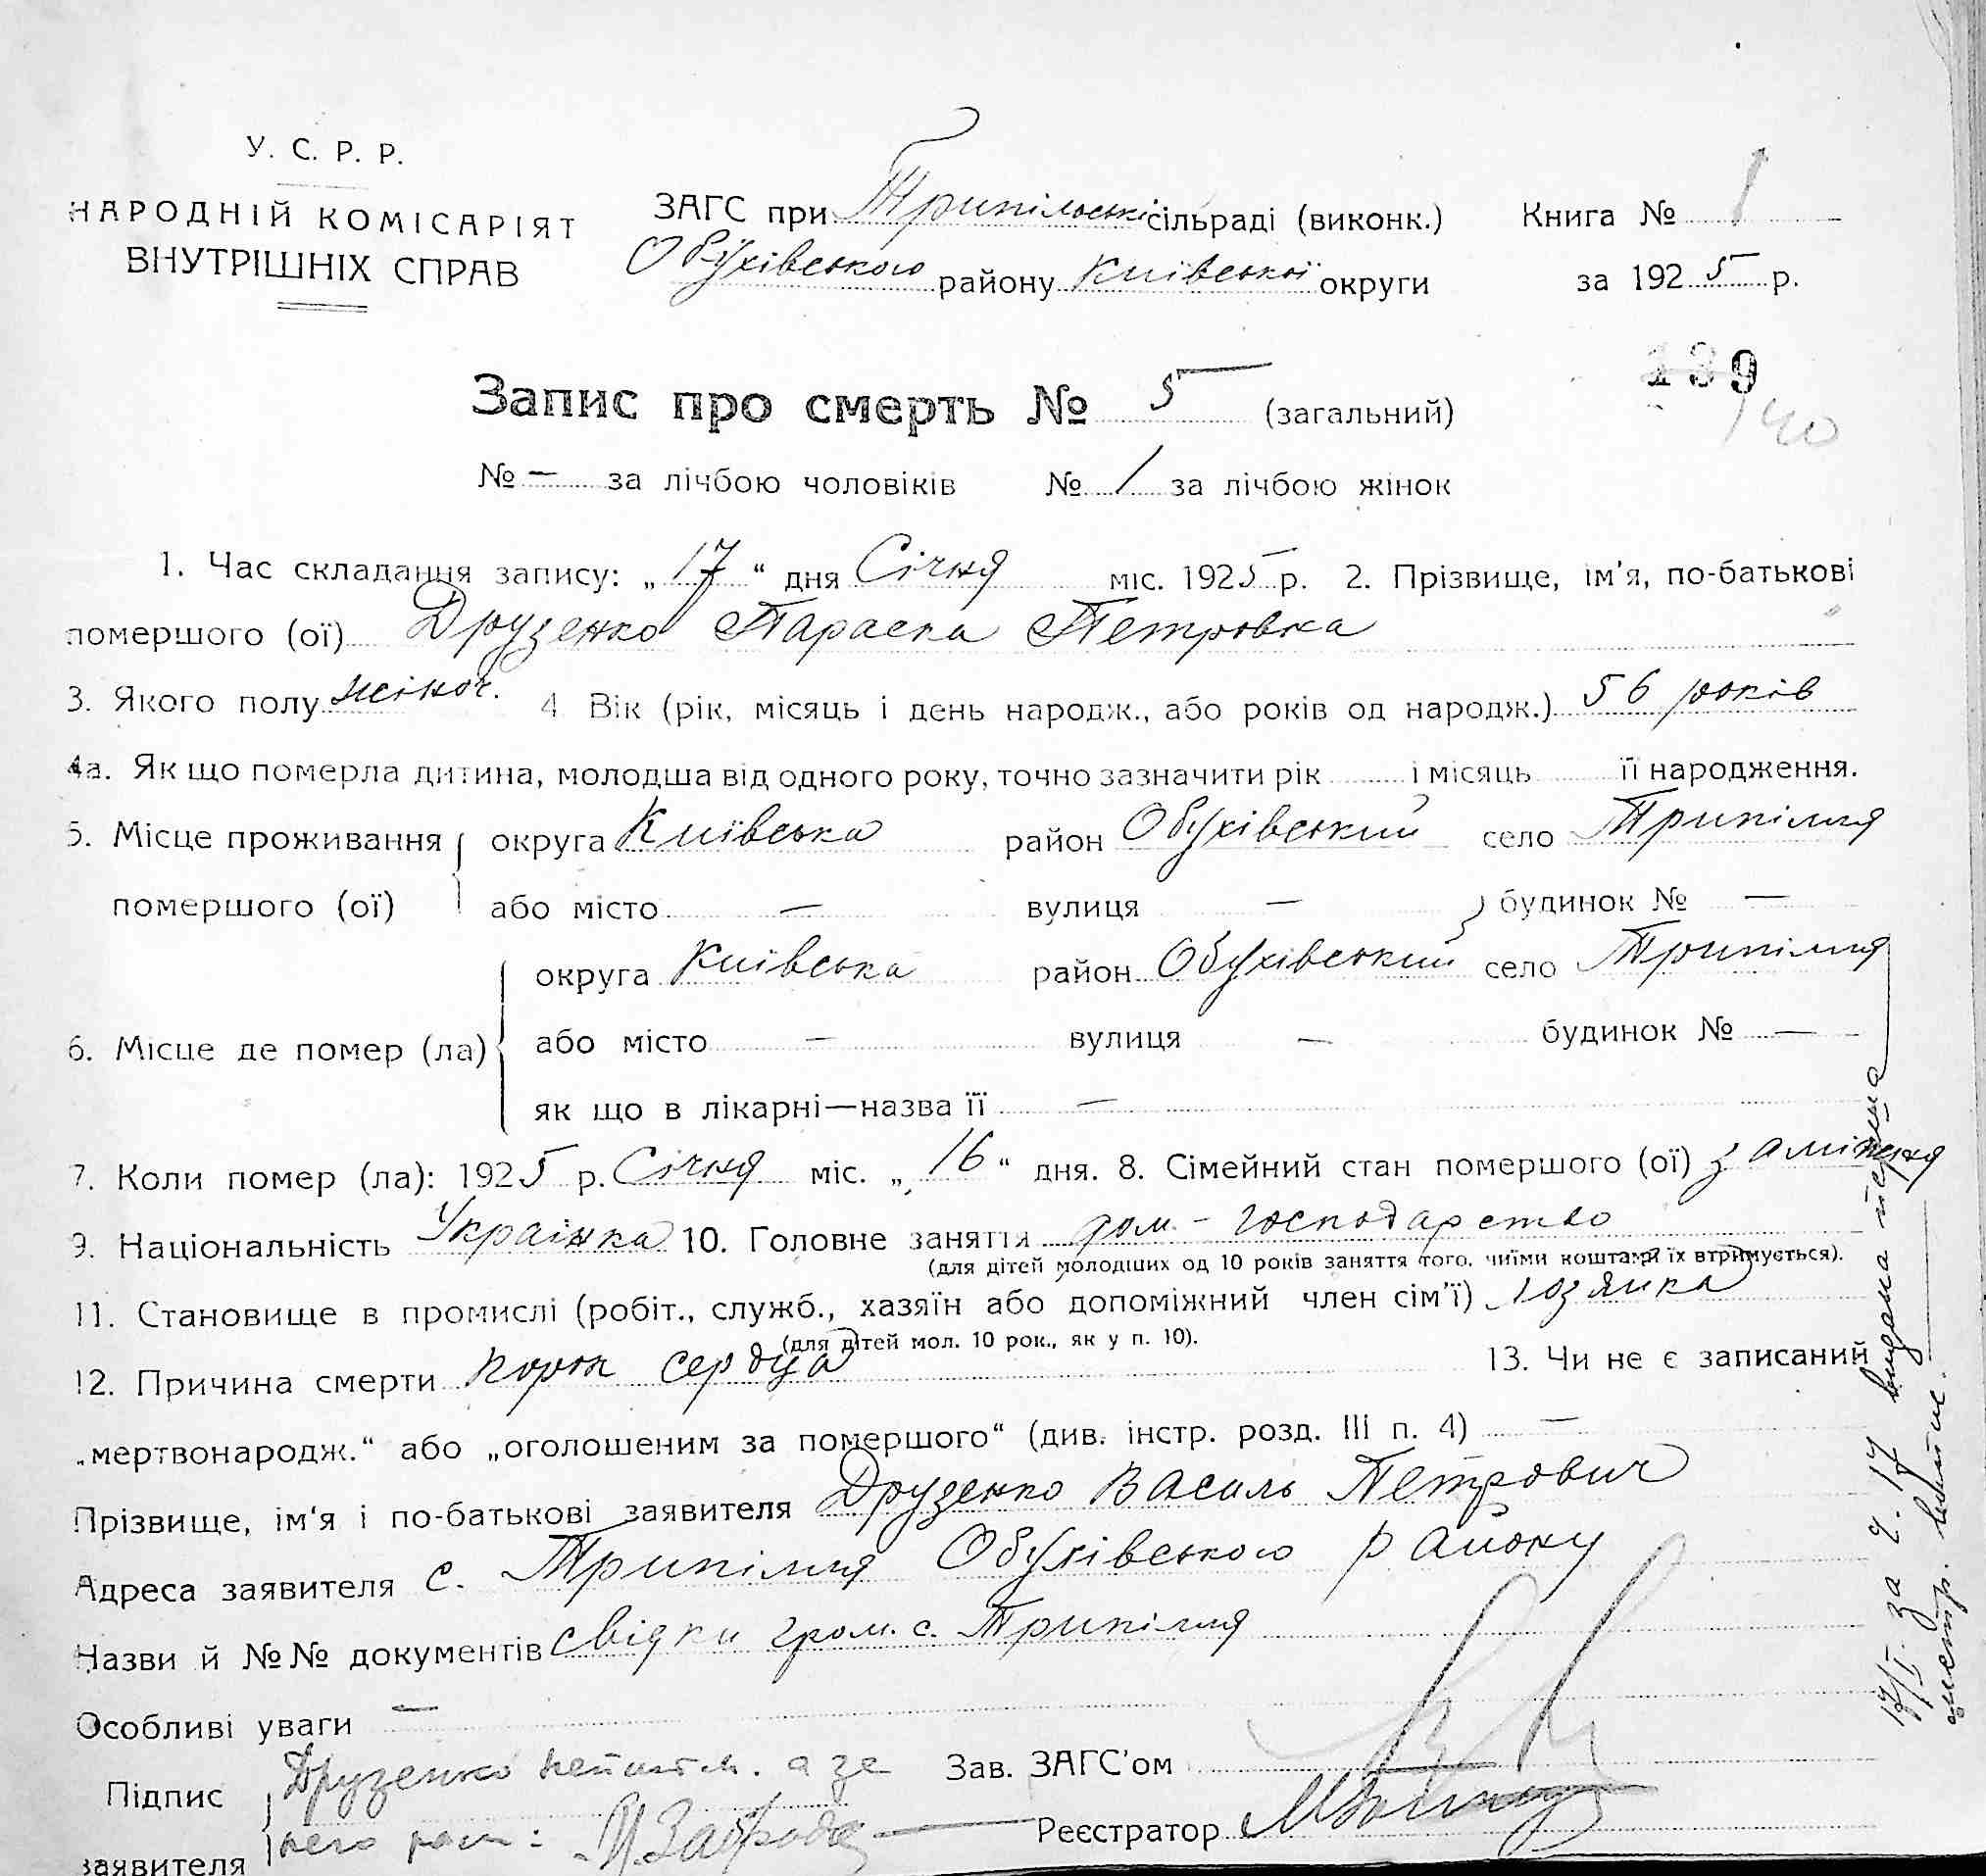 У. С. Р. Р.
НАРОДНІЙ КОМІСАРІЯТ
ВНУТРІШНІХ СПРАВ
ЗАГС при Трипільські сільраді (виконк.)
Обухівського району Київської округи
Книга № 1
за 1925 р.
139
140
Запис про смерть № 5 (загальний)
№ — за лічбою чоловіків № 1 за лічбою жінок
1. Час складання запису: „17“ дня Січня міс. 1925 р. 2. Прізвище, ім'я, по-батькові
помершого (ої) Друзенко Параска Петровка
3. Якого полу жіноч. 4 Вік (рік, місяць і день народж., або років од народж.) 56 років
4а. Як що померла дитина, молодша від одного року, точно зазначити рік і місяць її народження.
5. Місце проживання округа Київська район Обухівський село Трипілля
помершого (ої) або місто — вулиця — будинок № —
округа Київська район Обухівський село Трипілля
6. Місце де помер (ла) або місто — вулиця — будинок № —
як що в лікарні—назва її —
7. Коли помер (ла): 1925 р. Січня міс. „16“ дня. 8. Сімейний стан помершого (ої) заміжня
9. Національність Українка 10. Головне заняття дом.-господарство
(для дітей молодших од 10 років заняття того, чиїми коштами їх втримується).
11. Становище в промислі (робіт., служб., хазяїн або допоміжний член сім'ї) хозяйка
(для дітей мол. 10 рок., як у п. 10).
12. Причина смерти порок сердца 13. Чи не є записаний
„мертвонародж.“ або „оголошеним за помершого“ (див. інстр. розд. III п. 4) —
Прізвище, ім'я і по-батькові заявителя Друзенко Василь Петрович
Адреса заявителя с. Трипілля Обухівського району
Назви й №№ документів свідки гром. с. Трипілля
Особливі уваги —
Підпис Друзенко неписьм. а за Зав. ЗАГС'ом
заявителя него расп:
Реєстратор
17/I. за ч. 17 видана перша
метр. випис.